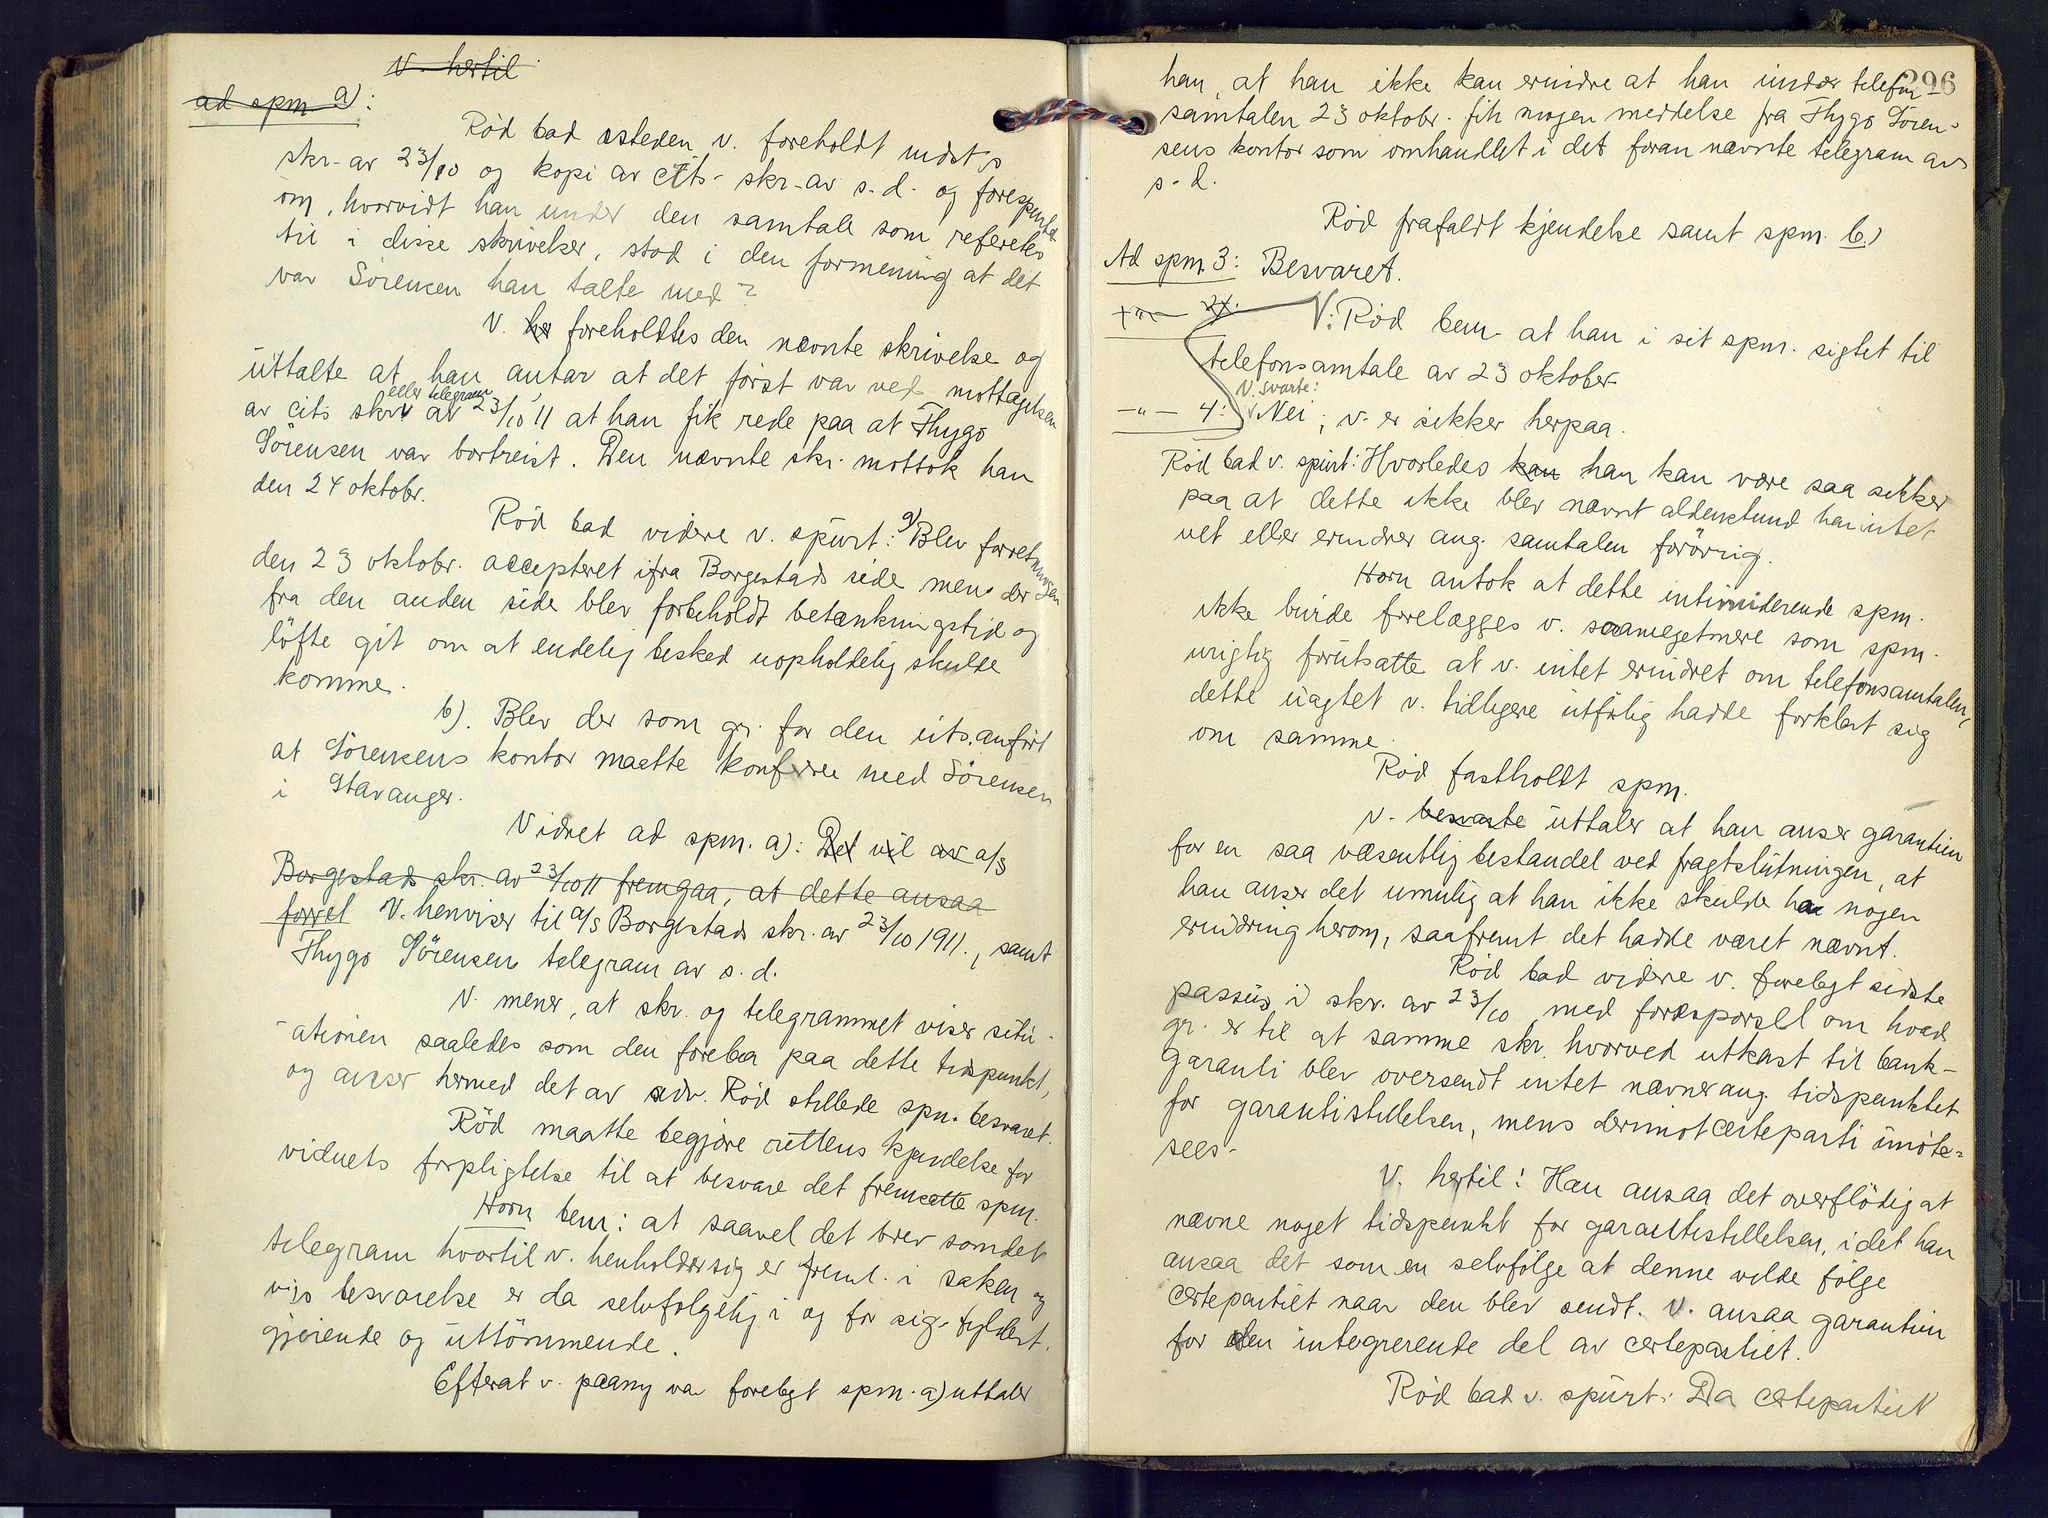 V. hertil
ad spm a):
Rød bad v. foreholdt indst.s
skr. av 23/10 og kopi av cits. skr. av s. d. og forespurtes
om, hvorvidt han under den samtale som refereres
til i disse skrivelser, stod i den formening at det
var Sörensen han talte med?
V. her foreholdtes den nævnte skrivelse og
uttalte at han antar at det først var ved mottagelsen
av cits skr. eller telegram av 23/10 11 at han fik rede paa at Thygo
Sörensen var bortreist. Den nævnte skr. mottok han
den 24 oktobr.
Rød bad videre v. spurt: a) Blev forretningen
den 23 oktobr. accepteret ifra Borgestads side mens der
fra den anden side blev forbeholdt betænkningstid og
löfte git om at endelig besked uopholdelig skulde
komme.
b). Blev der som gr. for den uts. anført
at Sörensens kontor maatte konferere med Sörensen
i Stavanger.
Vidnet ad spm. a): Det vil av a/s
Borgestads skr. av 23/10 11 fremgaa, at dette ansaa
forret V. henviser til a/s Borgestads skr. av 23/10 1911., samt
Thygo Sörensen telegram av s. d.
V. mener, at skr. og telegrammet viser situ-
ationen saaledes som den forelaa paa dette tidspunkt,
og anser hermed det av adv. Rød stillede spm. besvaret.
Rød maatte begjære rettens kjendelse for
vidnets forpligtelse til at besvare det fremsatte spm.
Horn bem: at saavel det brev som det
telegram hvortil v. henholder sig er freml. i saken og
v.s besvarelse er da selvfølgelig i og for sig fyldest-
gjörende og uttömmende.
Efterat v. paany var forelagt spm. a) uttaler
296
han, at han ikke kan erindre at han under telefon-
samtalen 23 oktobr. fik nogen meddelse fra Thygo Sören-
sens kontor som omhandlet i det foran nævnte telegram av
s. d.
Rød frafaldt kjendelse samt spm. b.)
Ad spm. 3: Besvaret.
-"- 4:
V: Rød bem. at han i sit spm. sigtet til
telefonsamtale av 23 oktober.
V. svarte:
-"- 4: Nei, v. er sikker herpaa.
Rød bad v. spurt: Hvorledes kan han kan være saa sikker
paa at dette ikke blev nævnt aldenstund han intet
vet eller erindrer ang. samtalen forövrig.
Horn antok at dette intimiderende spm.
ikke burde forelægges v. saameget mere som spm.
urigtig forutsatte at v. intet erindret om telefonsamtalen,
dette uagtet v. tidligere utförlig hadde forklart sig
om samme.
Rød fastholdt spm.
V. besvarte uttaler at han anser garantien
for en saa væsentlig bestandel ved fragtslutningen, at
han anser det umulig at han ikke skulde ha nogen
erindring herom, saafremt det hadde været nævnt.
Rød bad videre v. forelagt sidste
passus i skr. av 23/10 med forespørsel om hvad
gr. er til at samme skr. hvorved utkast til bank-
garanti blev oversendt intet nævner ang. tidspunktet
for garantistillelsen, mens derimot certeparti imöte-
sees.
V. hertil: Han ansaa det overflödig at
nævne noget tidspunkt for garantistillelsen, idet han
ansaa det som en selvfölge at denne vilde fölge
certepartiet naar den blev sendt. V. ansaa garantien
for den integrerende del av certepartiet.
Rød bad v. spurt: Da certepartiet